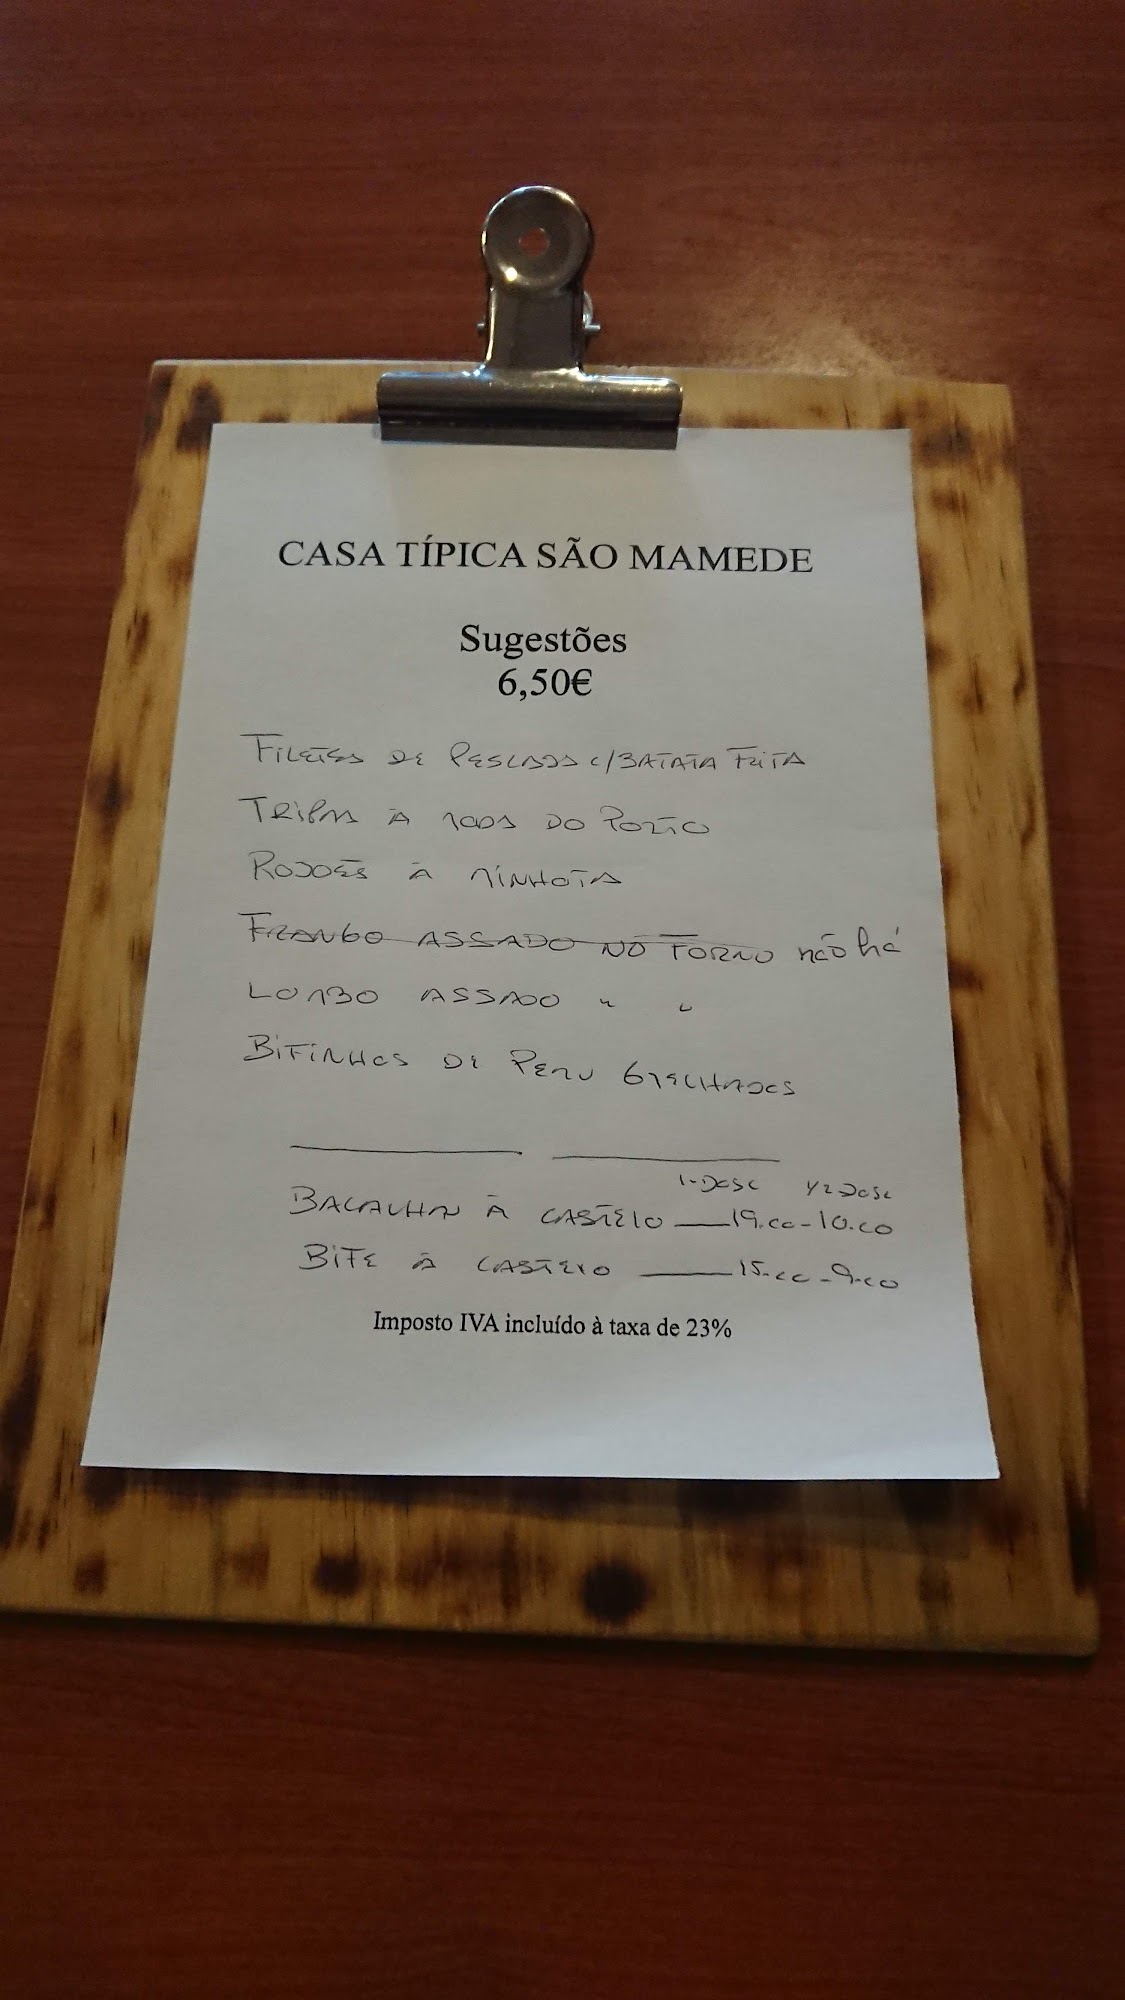 CASA TÍPICA SÃO MAMEDE
Sugestões
6,50€
FILETES DE PESCADA C/BATATA FRITA
TRIPAS À MODA DO PORTO
ROJOES À MINHOTA
FRANGO ASSADO NO FORNO não há
LOMBO ASSADO " "
BIFINHOS DE PERU GRELHADOS
1-DOSE 1/2 DOSE
BACALHAU À CASTELO 19.00-10.00
BIFE À CASTELO 15.00-9.00
Imposto IVA incluído à taxa de 23%